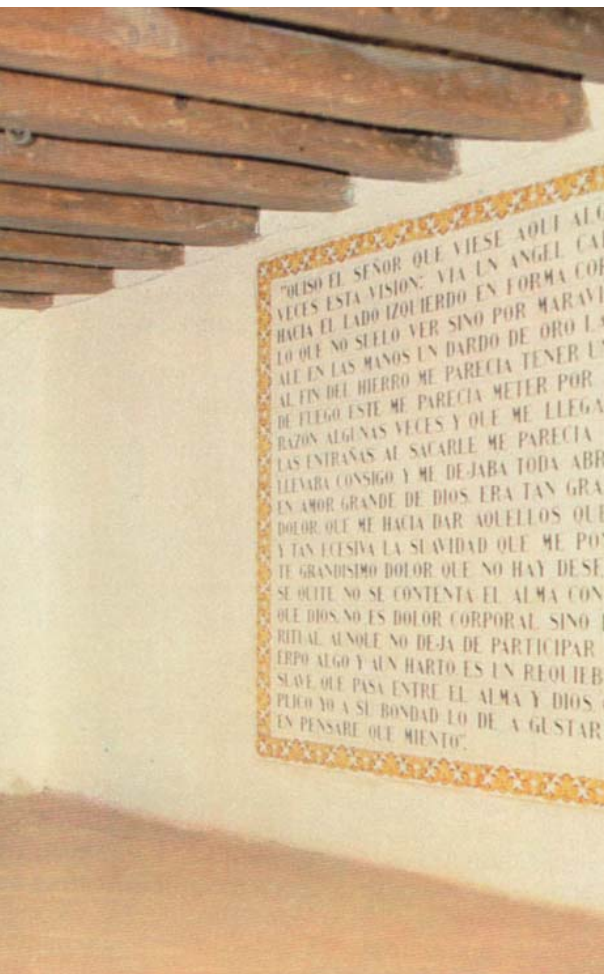 "QUISO EL SEÑOR QUE VIESE AQUI ALG
VECES ESTA VISION: VIA UN ANGEL CA
HACIA EL LADO IZQUIERDO EN FORMA COR
LO QUE NO SUELO VER SINO POR MARAVI
ALE EN LAS MANOS UN DARDO DE ORO LA
AL FIN DEL HIERRO ME PARECIA TENER UN
DE FUEGO ESTE ME PARECIA METER POR
RAZON ALGUNAS VECES Y QUE ME LLEGA
LAS ENTRAÑAS AL SACARLE ME PARECIA
LLEVABA CONSIGO Y ME DEJABA TODA ABR
EN AMOR GRANDE DE DIOS. ERA TAN GRA
DOLOR, QUE ME HACIA DAR AQUELLOS QUE
Y TAN ECESIVA LA SUAVIDAD QUE ME PO
TE GRANDISIMO DOLOR QUE NO HAY DESE
SE QUITE, NO SE CONTENTA EL ALMA CON
QUE DIOS. NO ES DOLOR CORPORAL SINO
RITUAL, AUNQUE NO DEJA DE PARTICIPAR
ERPO ALGO Y AUN HARTO ES UN REQUIEB
SUAVE, QUE PASA ENTRE EL ALMA Y DIOS
PLICO YO A SU BONDAD LO DE A GUSTAR
EN PENSARE QUE MIENTO".